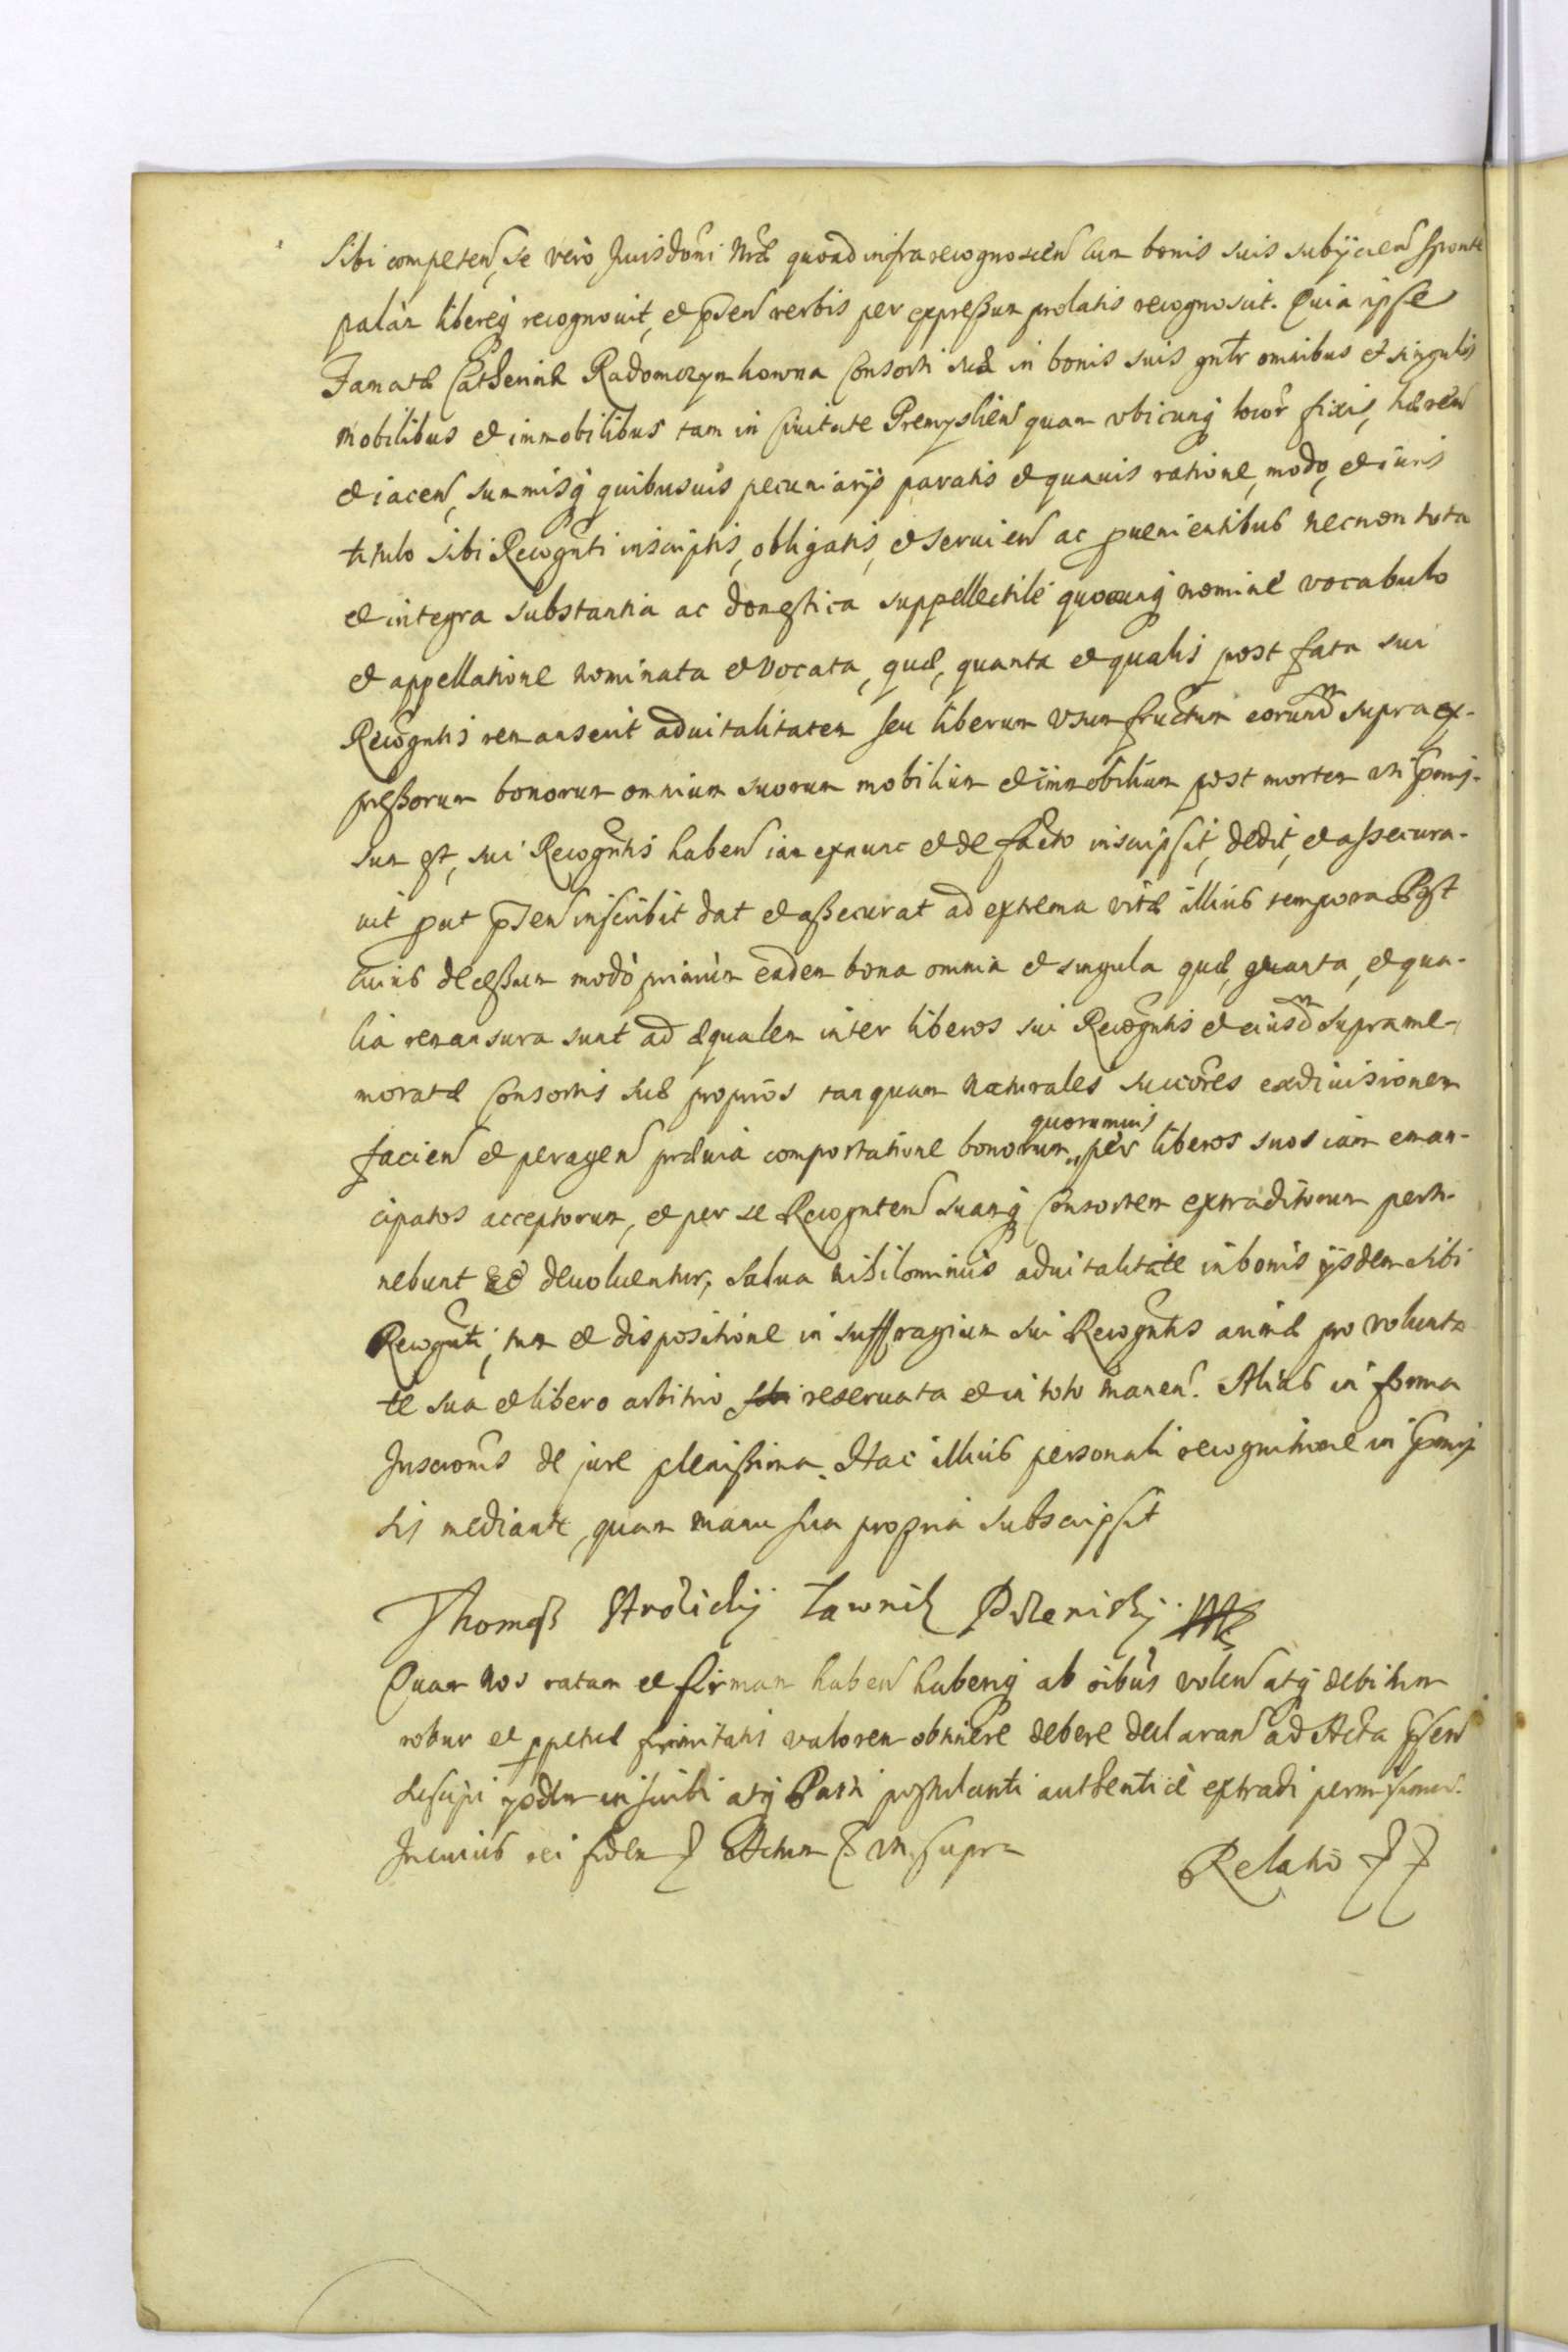 sibi competen, se vero Jurisdoni Nræ quoad infra recognoscen cum bonis suis subijcien sponte
palàm libereq recognouit, et pñsen verbis per expressum prolatis recognoscit. Quia ipse
Famatæ Catherinæ Radomczynkowna Consorti suæ in bonis suis gntr omnibus et singulis
mobilibus et immobilibus tam in Ciuitate Premyslien quam vbicunq locor fixis, hæren
et iacen, summisq quibusuis pecuniarijs paratis et quauis ratione, modo, et iuris
titulo sibi Recognti inscriptis, obligatis, et seruien ac puenientibus necnon tota
et integra substantia ac domestica suppellectili quocunq nomine vocabulo
et appellatione nominata et vocata, quæ, quanta et qualis post fata sui
Recogntis remanserit aduitalitatem seu liberum vsumfructum eorund supra ex-
pressorum bonorum omnium suorum mobilium et immobilium post mortem vti pmis-
sum est, sui Recogntis haben iam exnunc et de facto inscripsit, dedit, et assecura-
uit put pñsen inscribit dat et assecurat ad extrema vitæ illius tempora Post
cuius decessum modò primùm eadem bona omnia et singula quæ, quanta, et qua-
lia remansura sunt ad æqualem inter liberos sui Recogntis et eiusd supra me-
moratæ Consortis suæ proprios tanquam naturales succores exdiuisionem
facien et peragen præuia comportatione bonorum quorumuis per liberos suos iam eman-
cipatos acceptorum, et per se Recognten suamq Consortem extraditorum perti-
nebunt et deuoluentur, Salua nihilominus aduitalitate in bonis ijsdem sibi
Recognti, tum et dispositione in suffragium sui Recogntis animæ pro volunta-
te sua et libero arbitrio reseruata et in toto manen. Alias in forma
Inscronis de jure plenissima. Hac illius personali recognitione in pmis-
sis mediante, quam manu sua propria subscripsit
Thomas Lawnik
Quam nos ratam et firman haben haberiq ab oibus volen atq debitum
robur et ppetuæ firmitatis valorem obtinere debere declaran ad Acta pñsen
suscipi inscribi atq Parti postulanti authenticè extradi permisimus.
In cuius rei fidem Actum vt supra
Relatio